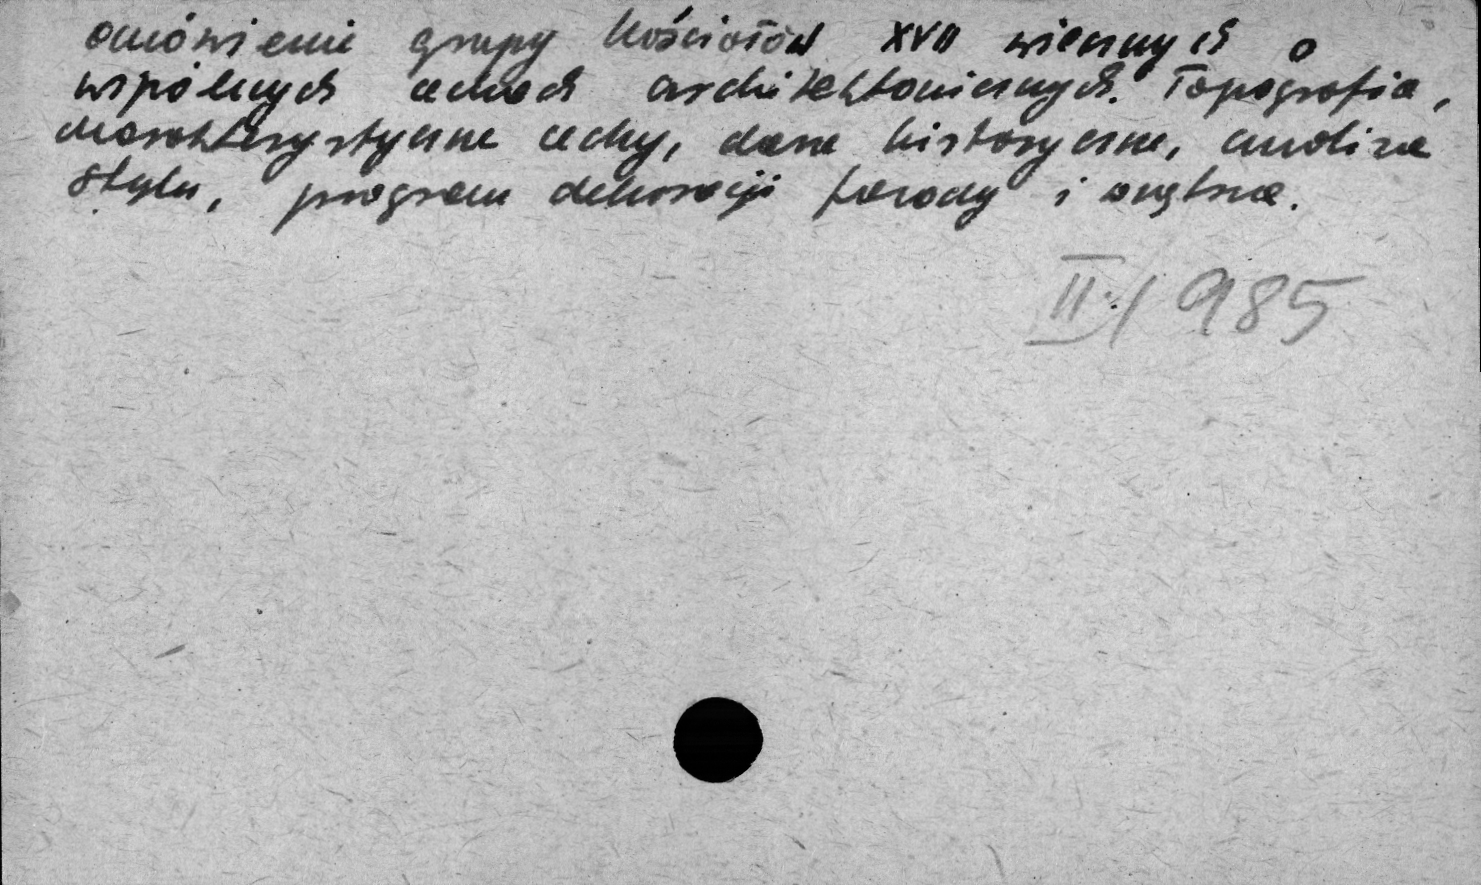 omówienie grupy kościołów XVII wiecznych o
wspólnych cechach architektonicznych. Topografia,
charakterystyczne cechy, dane historyczne, analiza
stylu, program dekoracji fasady i wnętrza.
II/1985